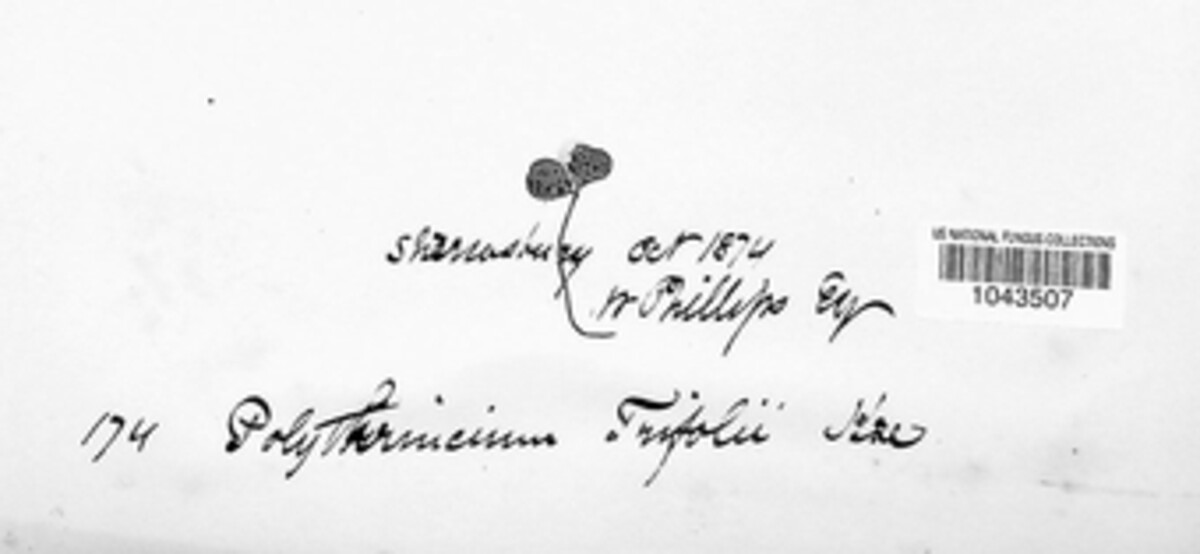 Shrewsbury Oct 1874
W Phillips Esq
US NATIONAL FUNGUS COLLECTIONS
1043507
174 Polythrincium Trifolii Kze